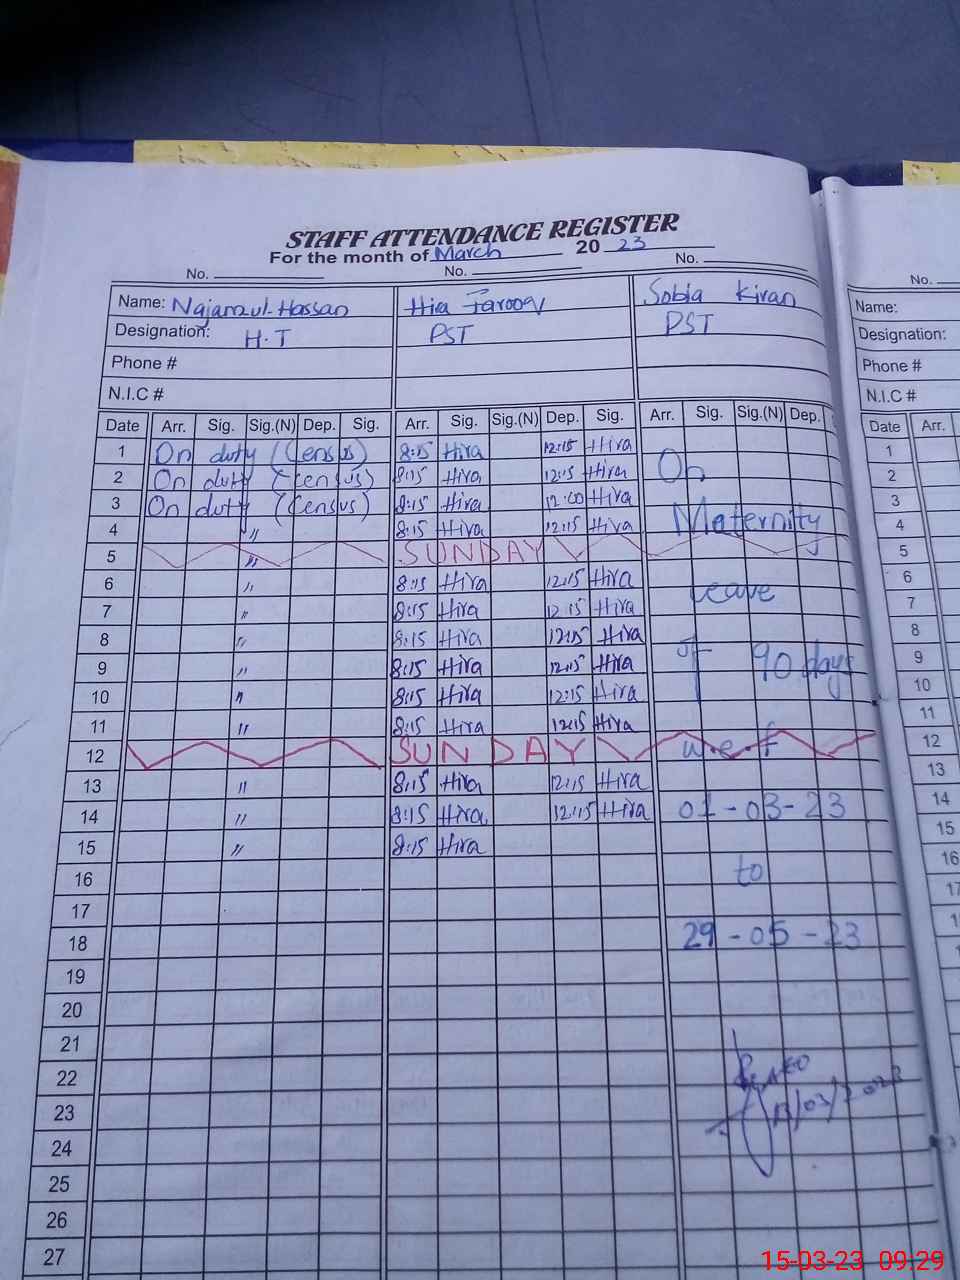 STAFF ATTENDANCE REGISTER
For the month of March 20 23
No. No. No. No.
Name: Najam-ul-Hassan Hira Farooq Sobia Kiran Name:
Designation: H.T PST PST Designation:
Phone # Phone #
N.I.C # N.I.C #
Date Arr. Sig. Sig.(N) Dep. Sig. Arr. Sig. Sig.(N) Dep. Sig. Arr. Sig. Sig.(N) Dep. Date Arr.
1 On duty (Census) 8:15 Hira 12:15 Hira 1
2 On duty (census) 8:15 Hira 12:15 Hira On 2
3 On duty (Census) 8:15 Hira 12:00 Hira 3
4 〃 8:15 Hira 12:15 Hira Maternity 4
5 〃 SUNDAY 5
6 〃 8:15 Hira 12:15 Hira leave 6
7 〃 8:15 Hira 12:15 Hira 7
8 〃 8:15 Hira 12:15 Hira 8
9 〃 8:15 Hira 12:15 Hira of 90 days 9
10 〃 8:15 Hira 12:15 Hira 10
11 〃 8:15 Hira 12:15 Hira 11
12 SUNDAY w.e.f 12
13 〃 8:15 Hira 12:15 Hira 13
14 〃 8:15 Hira 12:15 Hira 01-03-23 14
15 〃 8:15 Hira 15
16 to 16
17 17
18 29-05-23
19
20
21
22
23 /03/2023
24
25
26
27
15-03-23 09:29